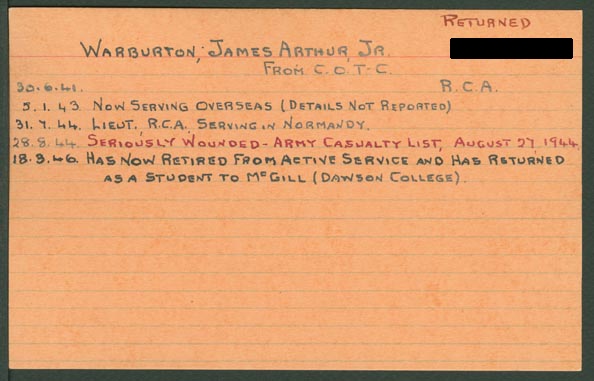 RETURNED
WARBURTON, JAMES ARTHUR, JR.
FROM C.O.T.C.
30.6.41. R.C.A.
5.1.43. NOW SERVING OVERSEAS (DETAILS NOT REPORTED)
31.7.44. LIEUT., R.C.A. SERVING IN NORMANDY.
28.8.44. SERIOUSLY WOUNDED - ARMY CASUALTY LIST, AUGUST 27, 1944.
18.3.46. HAS NOW RETIRED FROM ACTIVE SERVICE AND HAS RETURNED
AS A STUDENT TO MCGILL (DAWSON COLLEGE).